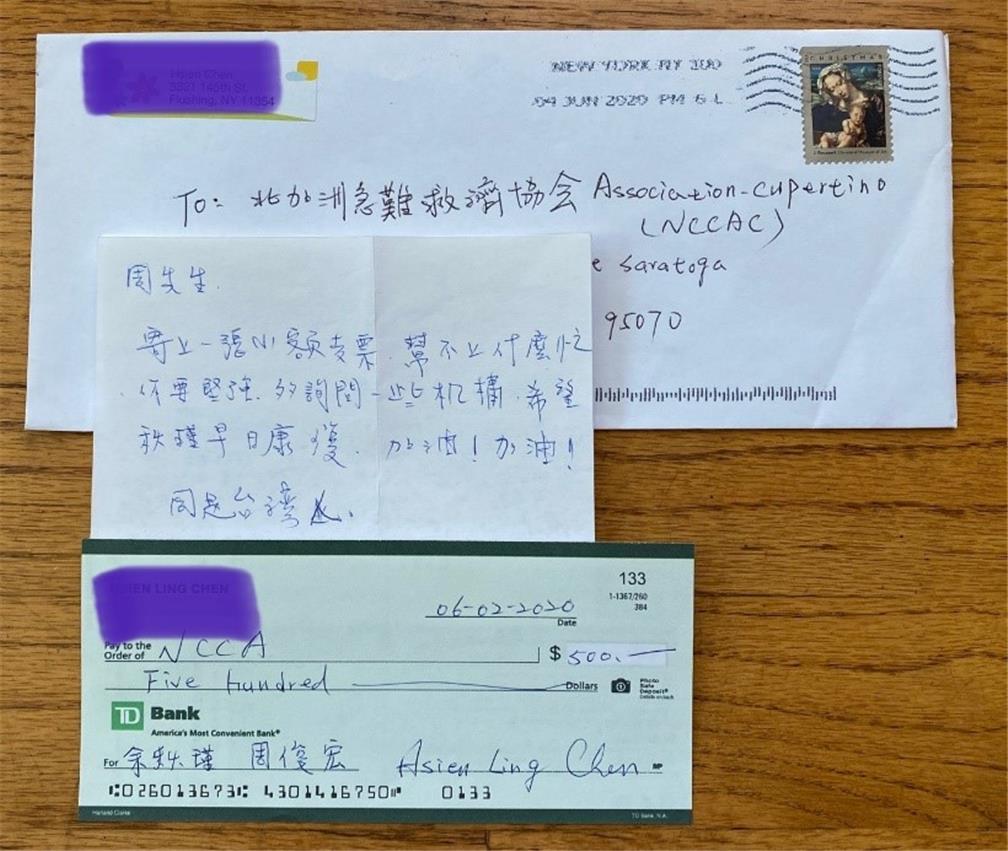 NEW YORK NY 100
04 JUN 2020 PM 6 L
CHRISTMAS
To: 北加洲急難救濟協会 Association-Cupertino
(NCCAC)
e Saratoga
95070
周先生.
寄上一張小額支票, 幫不上什麼忙
你要堅強, 多詢問一些机構. 希望
秋瑾早日康復. 加油! 加油!
同是台灣人.
133
1-1367/260
384
06-02-2020
Date
Pay to the
Order of NCCA $ 500.—
Five Hundred Dollars
Photo
Safe
Deposit®
Details on back
TD Bank
America's Most Convenient Bank®
For 余秋瑾 周俊宏 Hsien Ling Chen MP
⑆026013673⑆ 4301416750⑈ 0133
Harland Clarke
TD Bank, N.A.